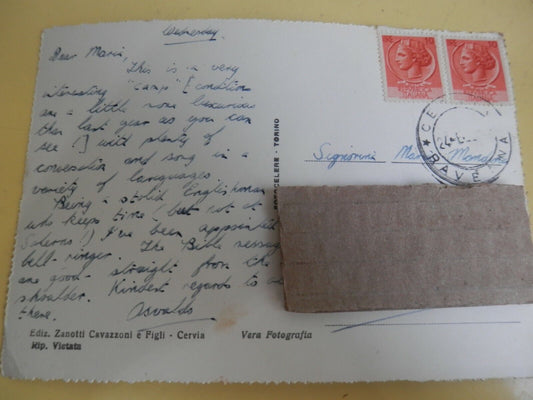 Wednesday
Dear Maria,
This is a very
interesting "Camp". Conditions
are a little more luxurious
than last year as you can
see, with plenty of
conversation and song in a
variety of languages.
Being a stolid Englishman
who keeps time (but not at
I've been appointed
bell-ringer. The Bible messages
are good - straight from the
shoulder. Kindest regards to
there. Osvaldo
Ediz. Zanotti Cavazzoni e Figli - Cervia
Rip. Vietata
Vera Fotografia
FOTOCELERE - TORINO
Signorina
RAVENNA